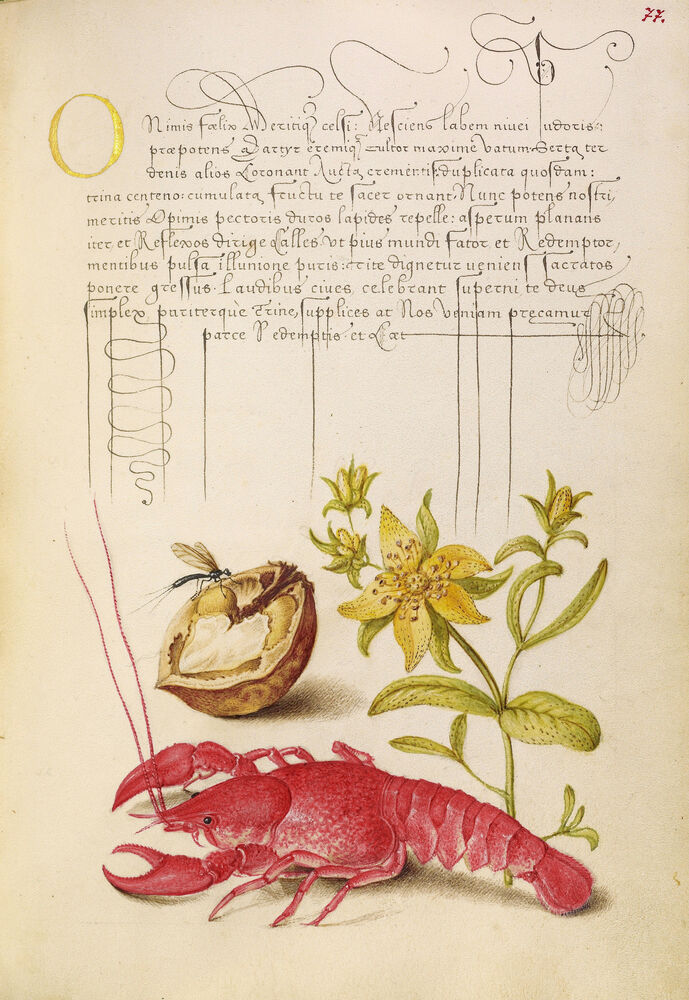 77.
O Nimis Fœlix Meritiq; celsi: Nesciens labem nivei pudoris:
præpotens Martyr eremiq; Cultor maxime Vatum. Serta ter
denis alios Coronant Aucta crementis, duplicata quosdam:
trina centeno: cumulata fructu te sacer ornant. Nunc potens nostri,
meritis Opimis pectoris duros lapides repelle: asperum planans
iter et Reflexos dirige Calles. Vt pius mundi Sator et Redemptor,
mentibus pulsa illuuione puris: rite dignetur veniens sacratos
ponere gressus. Laudibus ciues, celebrant superni te deus
simplex, pariterque trine, supplices at Nos Veniam precamur
parce Redemptis. et Cæt